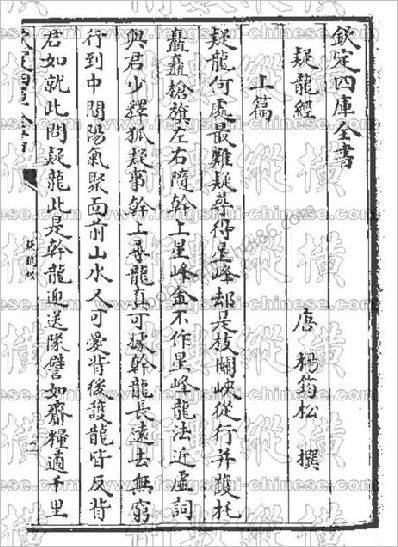 欽定四庫全書
疑龍經
唐 楊筠松 撰
上篇
疑龍何處最難疑尋得星峰却是枝關峽從行并護托
矗矗槍旗左右隨幹上星峰全不作星峰龍法近虛詞
與君少釋狐疑事幹上尋龍真可據幹龍長遠去無窮
行到中間陽氣聚面前山水又可愛背後護龍皆反背
君如就此問疑龍此是幹龍迎送隊譬如齎糧適千里
疑龍經
縱橫
fengshui-chinese.com